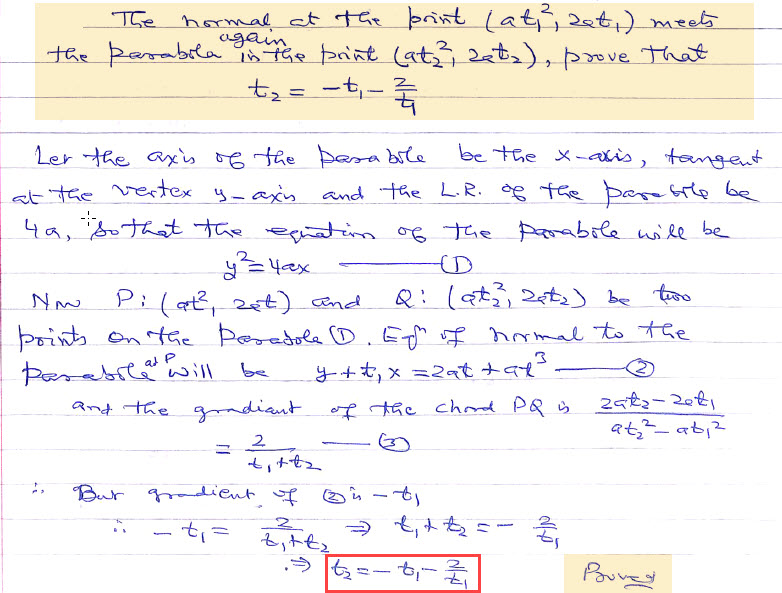 The normal at the point (at₁², 2at₁) meets
again
the parabola in the point (at₂², 2at₂), prove that
t₂ = -t₁ - 2/t₁
Let the axis of the parabola be the x-axis, tangent
at the vertex y-axis and the L.R. of the parabola be
4a, so that the equation of the parabola will be
y² = 4ax ——— ①
Now P: (at², 2at) and Q: (at₂², 2at₂) be two
points on the Parabola ①. Eqⁿ of normal to the
at P
parabola will be y + t₁x = 2at + at³ ——— ②
and the gradient of the chord PQ is (2at₂ - 2at₁)/(at₂² - at₁²)
= 2/(t₁ + t₂) ——— ③
∴ But gradient of ② is -t₁
∴ -t₁ = 2/(t₁ + t₂) ⇒ t₁ + t₂ = - 2/t₁
⇒ t₂ = - t₁ - 2/t₁
Proved